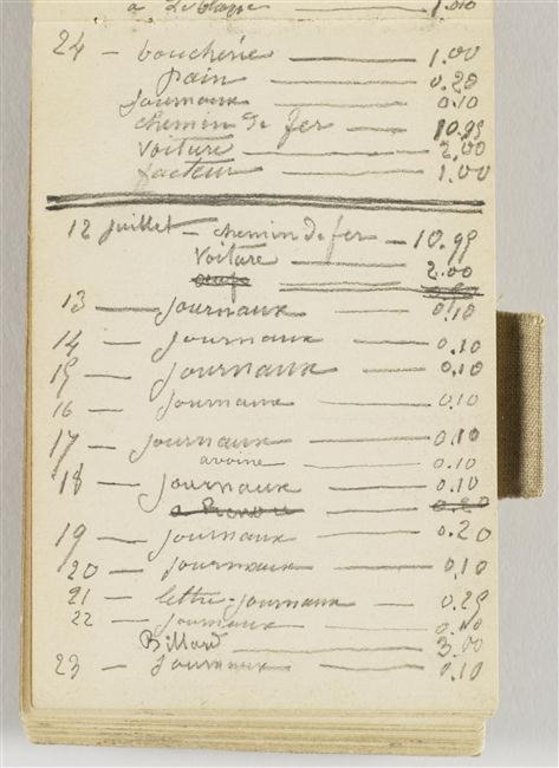 a 1.00
24 — boucherie — 1.00
pain — 0.20
journaux — 0.10
chemin de fer — 10.95
voiture — 2.00
facteur — 1.00
12 juillet — chemin de fer — 10.95
voiture — 2.00
13 — journaux — 0.10
14 — journaux — 0.10
15 — journaux — 0.10
16 — journaux — 0.10
17 — journaux — 0.10
avoine — 0.10
18 — journaux — 0.10
19 — journaux — 0.20
20 — journaux — 0.10
21 — lettre-journaux — 0.25
22 — journaux — 0.10
Billard — 3.00
23 — journaux — 0.10